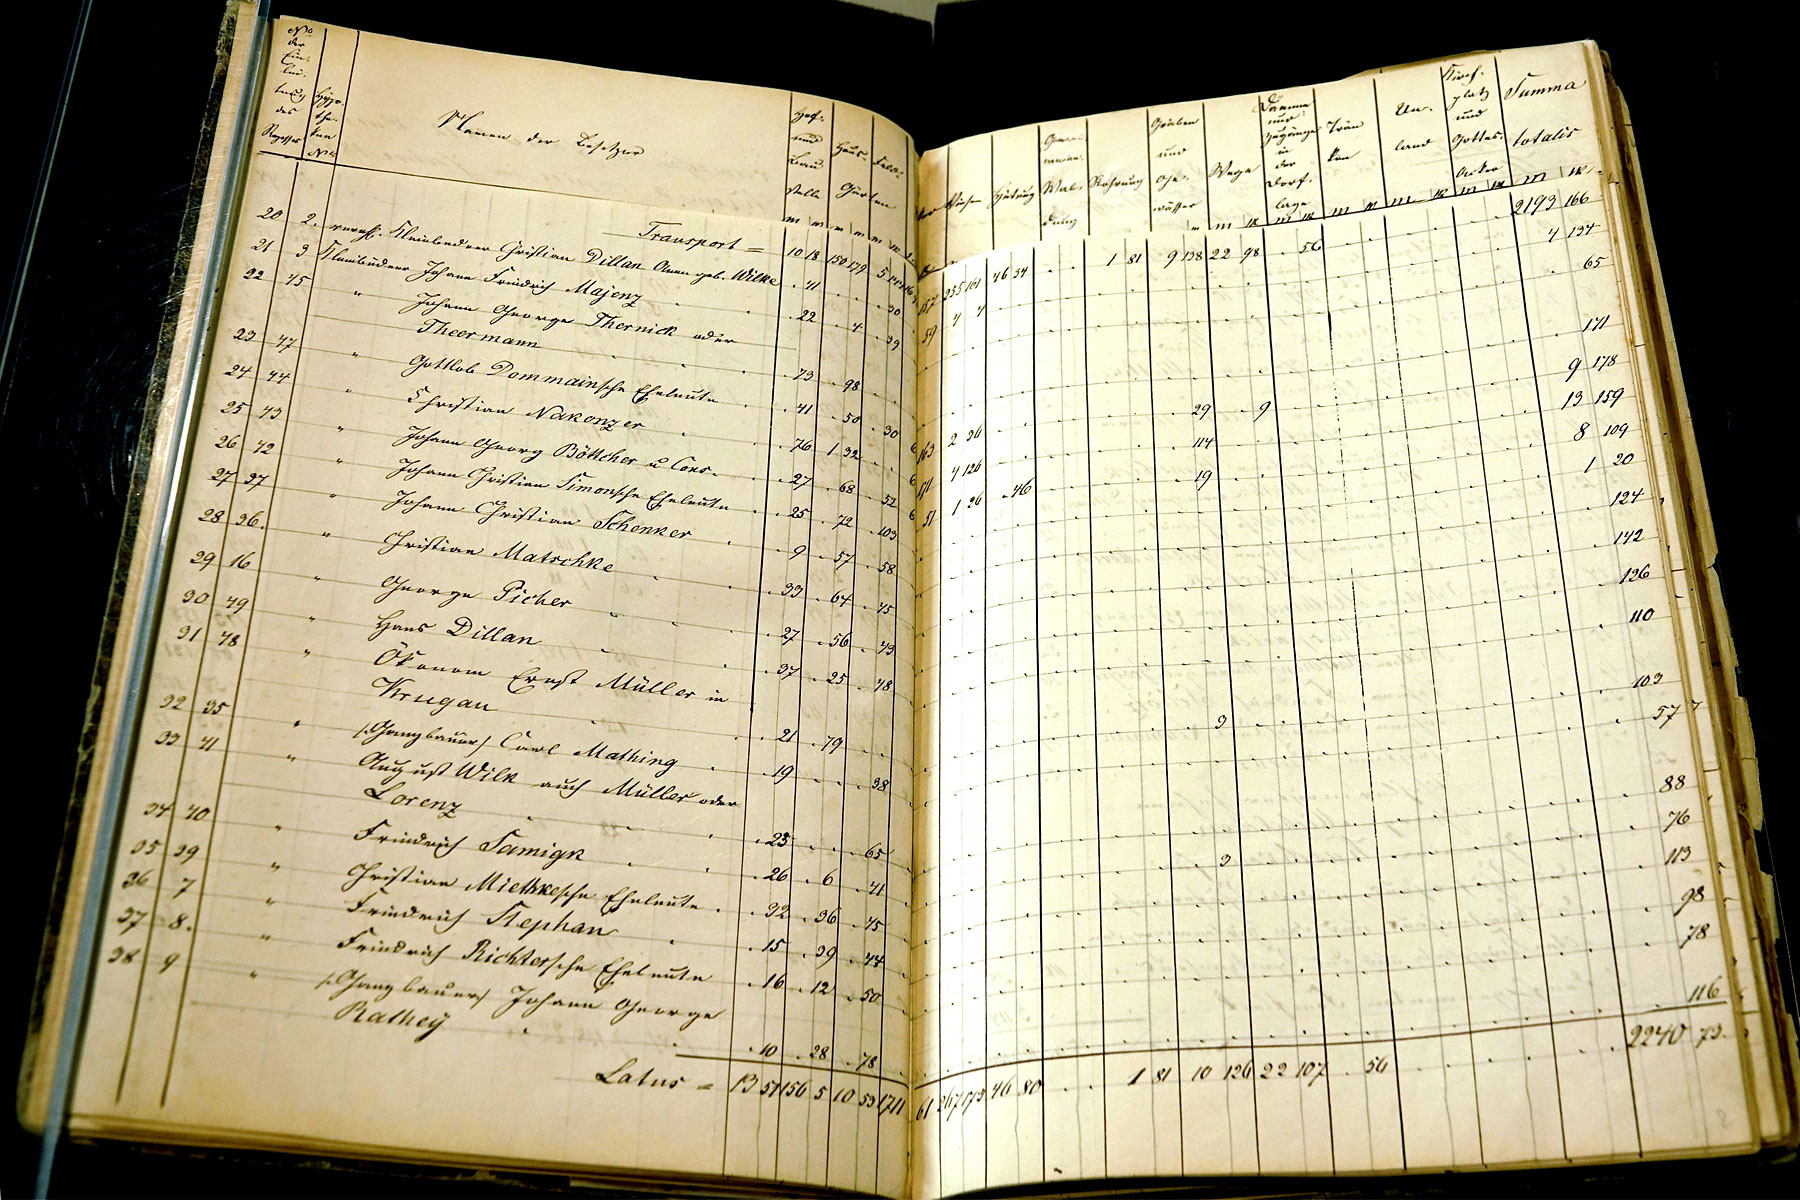 No
der
Ein-
lei-
tung
des
Rezesses
Hypo-
the-
ken
No
Namen der Besitzer
Hof-
und
Bau
stelle
Haus-
Feld-
Gärten
Wiesen
Hütung
Wal-
dung
Rohrung
Gräben
und
Ge-
wässer
Wege
Dämme
und
Zugänge
in
der
Dorf-
lage
Trän
ken
Un-
land
Kirch-
platz
und
Gottes-
Acker
Summa
totalis
Transport = 10 18 150 179 5 255 161 46 34 . . 1 81 9 138 22 98 . 56 2193 166
20 2. verehl. Kleinbüdner Christian Dillan geb. Wilke . 41 . . . 30 59 4 4 4 134
21 3 Kleinbüdner Johann Friedrich Majenz . 22 . 4 . 39 . 65
22 45 " Johann George Thernick oder
Theermann . 73 . 98 . . . 171
23 47 " Gottlob Dommainsche Eheleute . 41 . 50 . 30 163 2 36 . 29 . 9 9 178
24 44 " Christian Nakonzer . 76 1 32 . . 171 4 126 . 114 13 159
25 43 " Johann Georg Böttcher u Cons. . 27 . 68 . 52 51 1 36 . 46 . 19 8 109
26 42 " Johann Christian Simonsche Eheleute . 25 . 72 . 103 1 20
27 37 " Johann Christian Schenker . 9 . 57 . 58 . 124
28 36. " Christian Matschke . 33 . 64 . 45 . 142
29 16 " George Picher . 27 . 56 . 43 . 126
30 49 " Hans Dillan . 37 . 25 . 48 . 110
31 48 " Ökonom Ernst Müller in
Krugau . 21 . 79 . . . 3 . 103
32 35 " (Ganzbauer) Carl Mathing . 19 . . . 38 . 57
33 41 " August Wilk auch Müller oder
Lorenz . 23 . . . 65 . 88
34 40 " Friedrich Samigk . 26 . 6 . 41 . 3 . 76
35 39 " Christian Miethkesche Eheleute . 32 . 36 . 45 . 113
36 7 " Friedrich Stephan . 15 . 39 . 44 . 98
37 8. " Friedrich Richtersche Eheleute . 16 . 12 . 50 . 78
38 9 " (Ganzbauer) Johann George
Rathey . 10 . 28 . 78 . 116
Latus = 13 51 156 5 10 53 1711 61 267 173 46 80 . . 1 81 10 126 22 107 . 56 2240 73.